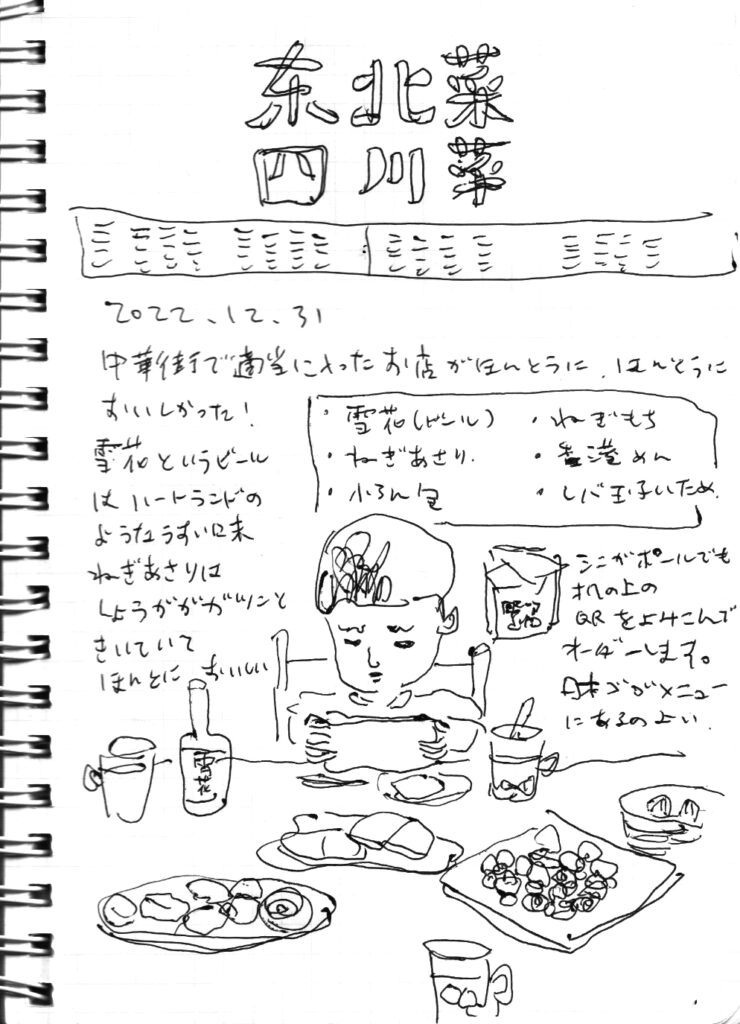 东北菜
四川菜
2022.12.31
中華街で適当に入ったお店がほんとうに、ほんとうに
おいしかった!
・雪花(ビール)
・ねぎもち
・ねぎあさり.
・香港めん
・小ろん包
・レバ玉子いため.
雪花というビール
は ハートランドの
ようなうすい口末
ねぎあさりは
しょうががガツンと
きいていて
ほんとに おいしい
シンガポールでも
机の上の
QRをよみこんで
オーダーします。
日本ゴがメニュー
にあるのよい.
雪花